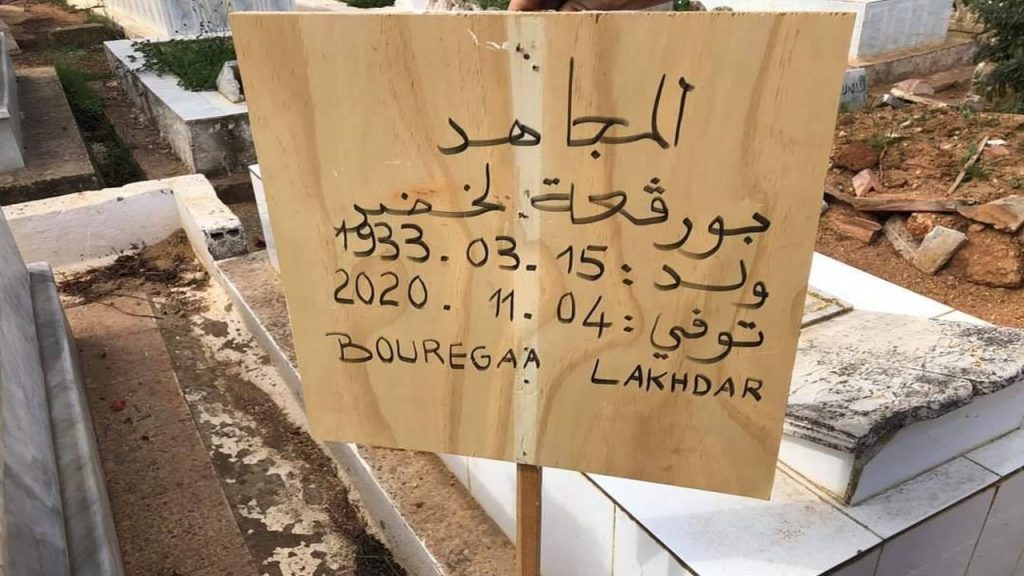 المجاهد
بورڨعة لخضر
ولد : 15 . 03 . 1933
توفي : 04 . 11 . 2020
BOUREGAA LAKHDAR